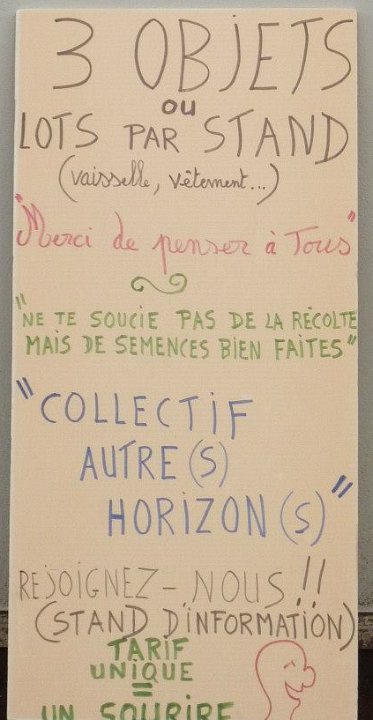 3 OBJETS
ou
LOTS PAR STAND
(vaisselle, vêtement...)
"Merci de penser à Tous"
"NE TE SOUCIE PAS DE LA RÉCOLTE
MAIS DE SEMENCES BIEN FAITES"
"COLLECTIF
AUTRE(S)
HORIZON(S)"
REJOIGNEZ-NOUS!!
(STAND D'INFORMATION)
TARIF
UNIQUE
=
UN SOURIRE